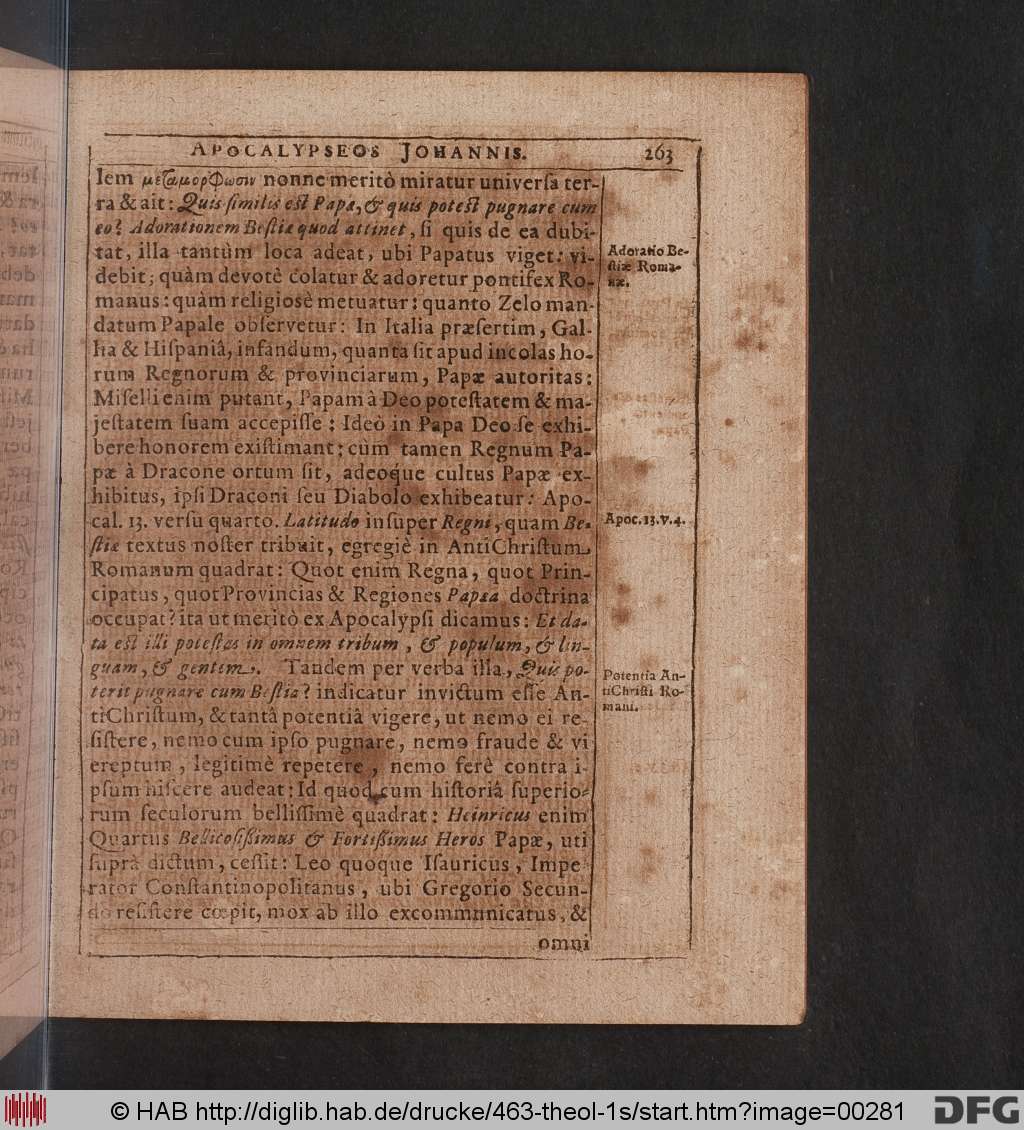 APOCALYPSEOS JOHANNIS. 263
Iem μεταμορφωσιν nonne meritò miratur universa ter-
ra & ait: Quis similis est Papæ, & quis potest pugnare cum
eo? Adorationem Bestiæ quod attinet, si quis de ea dubi-
tat, illa tantùm loca adeat, ubi Papatus viget: vi-
debit; quàm devotè colatur & adoretur pontifex Ro-
manus: quàm religiosè metuatur: quanto Zelo man-
datum Papale observetur: In Italia præsertim, Gal-
lia & Hispaniâ, infandum, quanta sit apud incolas ho-
rum Regnorum & provinciarum, Papæ autoritas:
Miselli enim putant, Papam à Deo potestatem & ma-
jestatem suam accepisse: Ideò in Papa Deo se exhi-
bere honorem existimant; cùm tamen Regnum Pa-
pæ à Dracone ortum sit, adeoque cultus Papæ ex-
hibitus, ipsi Draconi seu Diabolo exhibeatur: Apo-
cal. 13. versu quarto. Latitudo insuper Regni, quam Be-
stiæ textus noster tribuit, egregiè in AntiChristum
Romanum quadrat: Quot enim Regna, quot Prin-
cipatus, quot Provincias & Regiones Papæa doctrina
occupat? ita ut meritò ex Apocalypsi dicamus: Et da-
ta est illi potestas in omnem tribum, & populum, & lin-
guam, & gentem. Tandem per verba illa, Quis po-
terit pugnare cum Bestia? indicatur invictum esse An-
tiChristum, & tantâ potentiâ vigere, ut nemo ei re-
sistere, nemo cum ipso pugnare, nemo fraude & vi
ereptum, legitimè repetere, nemo ferè contra i-
psum hiscere audeat: Id quod cum historiâ superio-
rum seculorum bellissimè quadrat: Heinricus enim
Quartus Bellicosissimus & Fortissimus Heros Papæ, uti
suprà dictum, cessit: Leo quoque Isauricus, Impe-
rator Constantinopolitanus, ubi Gregorio Secun-
do resistere cœpit, mox ab illo excommunicatus, &
omni
Adoratio Be-
stiæ Roma-
næ.
Apoc. 13. v. 4.
Potentia An-
tiChristi Ro-
mani.
© HAB http://diglib.hab.de/drucke/463-theol-1s/start.htm?image=00281
DFG